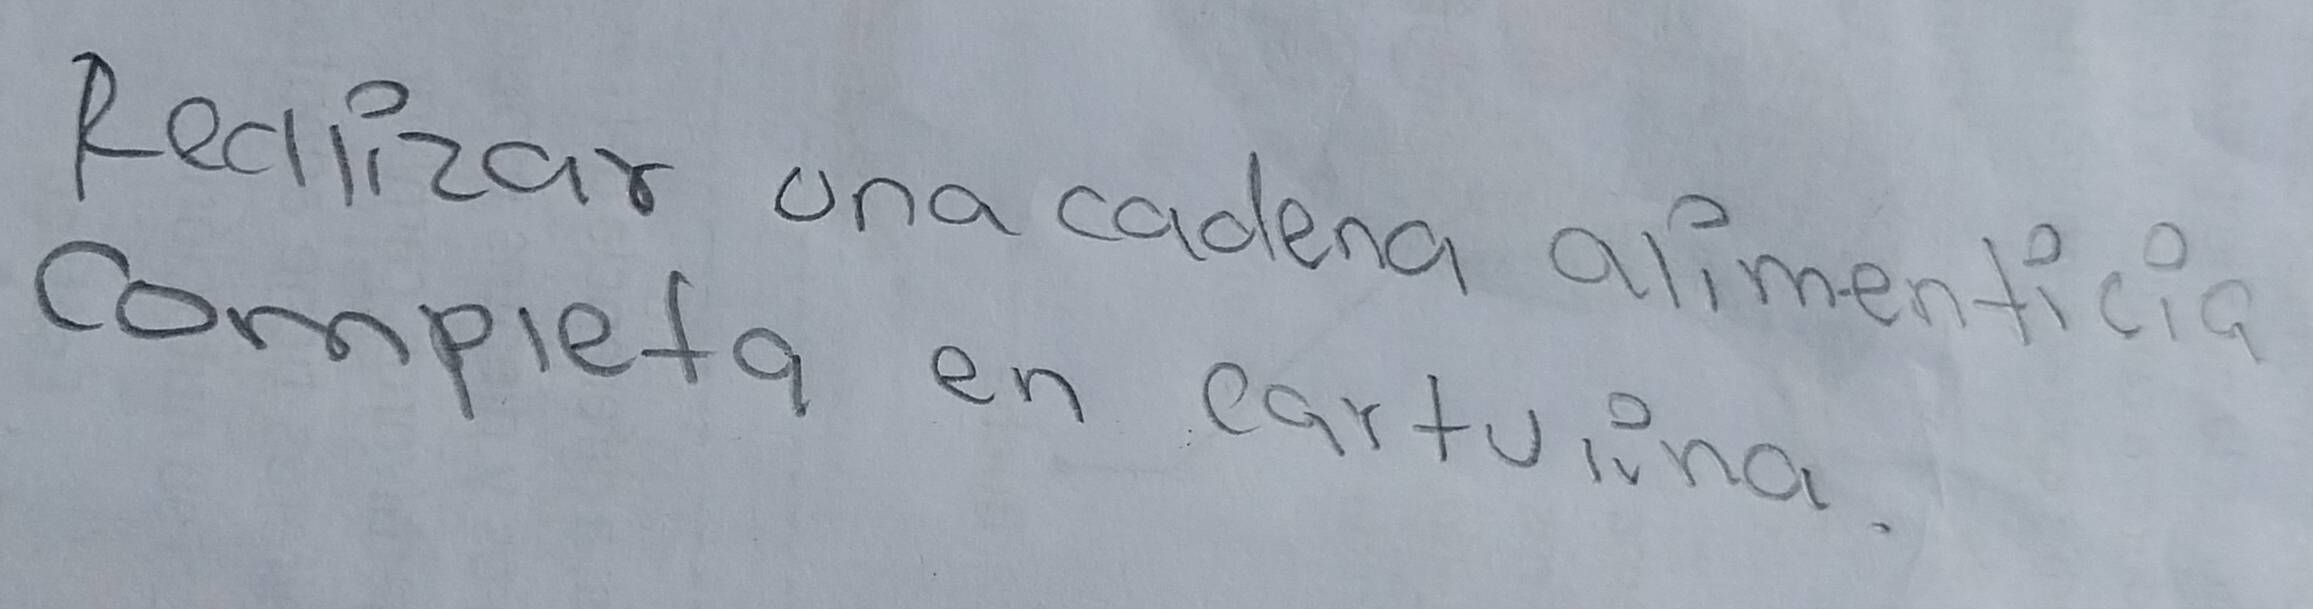 Realizar una cadena alimenticia
Completa en cartulina.